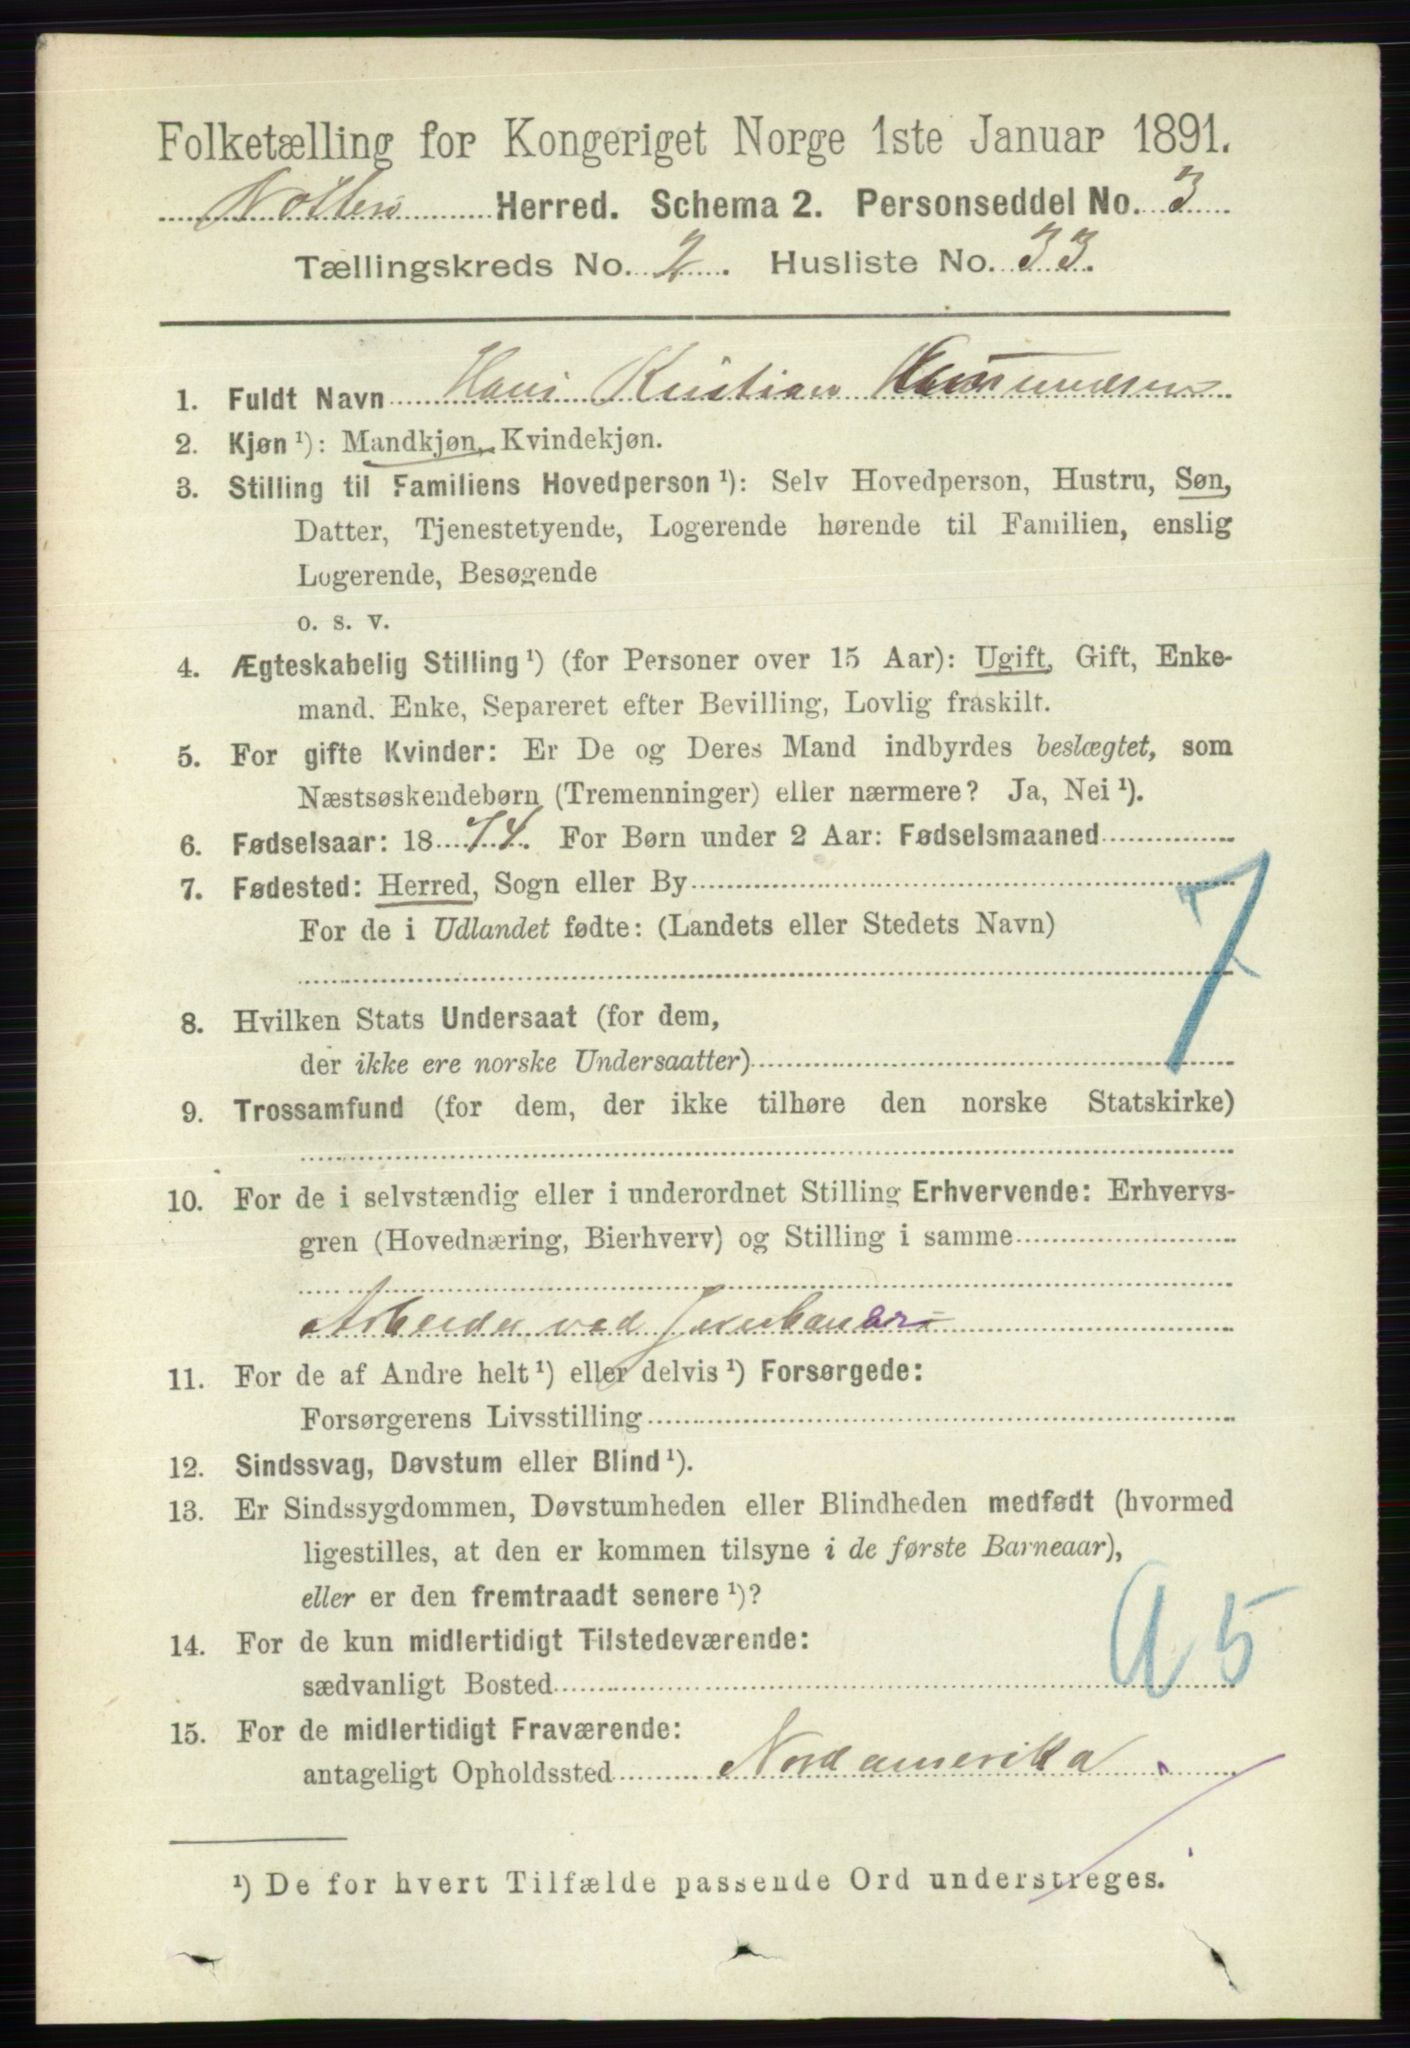 Folketælling for Kongeriget Norge 1ste Januar 1891.
Nøtterø Herred. Schema 2. Personseddel No. 3
Tællingskreds No. 2. Husliste No. 33.
1. Fuldt Navn Hans Kristian
2. Kjøn ¹): Mandkjøn, Kvindekjøn.
3. Stilling til Familiens Hovedperson ¹): Selv Hovedperson, Hustru, Søn,
Datter, Tjenestetyende, Logerende hørende til Familien, enslig
Logerende, Besøgende
o. s. v.
4. Ægteskabelig Stilling ¹) (for Personer over 15 Aar): Ugift, Gift, Enke-
mand. Enke, Separeret efter Bevilling, Lovlig fraskilt.
5. For gifte Kvinder: Er De og Deres Mand indbyrdes beslægtet, som
Næstsøskendebørn (Tremenninger) eller nærmere? Ja, Nei ¹).
6. Fødselsaar: 1874. For Børn under 2 Aar: Fødselsmaaned
7. Fødested: Herred, Sogn eller By
7
For de i Udlandet fødte: (Landets eller Stedets Navn)
8. Hvilken Stats Undersaat (for dem,
der ikke ere norske Undersaatter)
9. Trossamfund (for dem, der ikke tilhøre den norske Statskirke)
10. For de i selvstændig eller i underordnet Stilling Erhvervende: Erhvervs-
gren (Hovednæring, Bierhverv) og Stilling i samme
Arbeider ved
11. For de af Andre helt ¹) eller delvis ¹) Forsørgede:
Forsørgerens Livsstilling
12. Sindssvag, Døvstum eller Blind ¹).
13. Er Sindssygdommen, Døvstumheden eller Blindheden medfødt (hvormed
ligestilles, at den er kommen tilsyne i de første Barneaar),
eller er den fremtraadt senere ¹)?
14. For de kun midlertidigt Tilstedeværende:
sædvanligt Bosted
a 5
15. For de midlertidigt Fraværende:
antageligt Opholdssted Nordamerika
¹) De for hvert Tilfælde passende Ord understreges.